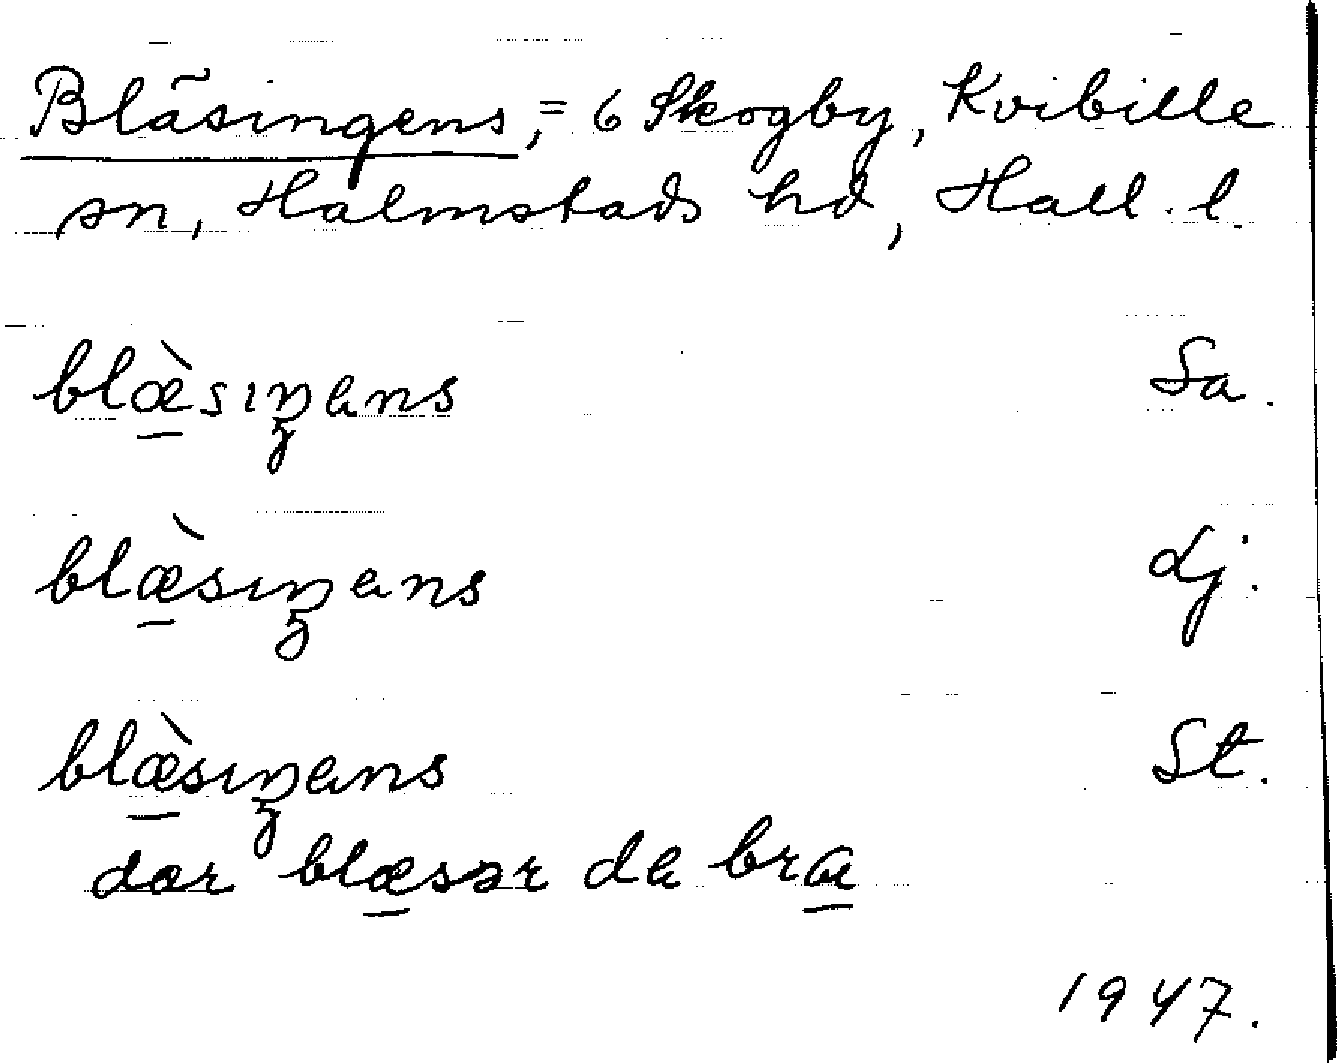 Bläsingens, = 6 Skogby, Kvibille
sn, Halmstads hd, Hall. l.
blæ̀sıŋans Sa.
blæ̀sıŋans Lj.
blæ̀sıŋans St.
dær blæsər da bra
1947.